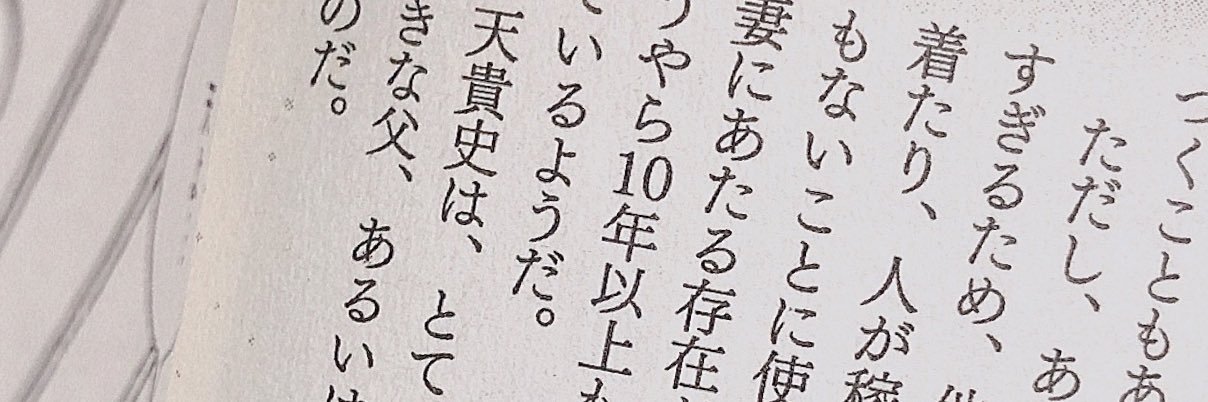 つくこともあ
ただし、あ
すぎるため、
着たり、人が稼
もないことに使
妻にあたる存在
うやら10年以上も
ているようだ。
天貴史は、とて
きな父、あるいは
のだ。